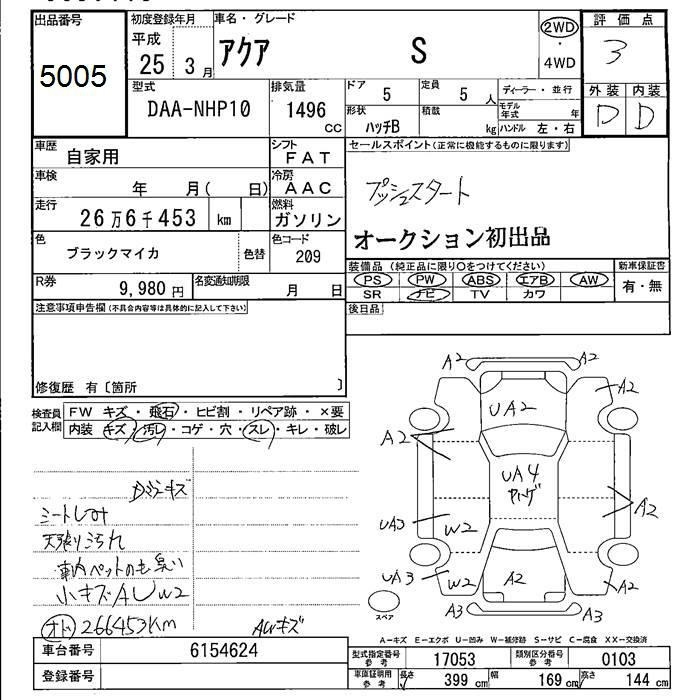 出品番号 初度登録年月 車名・グレード 評価点
5005 平成 25 3月 アクア S 2WD・4WD 3
型式 排気量 ドア 5 定員 5人 ディーラー・並行 外装 内装
DAA-NHP10 1496 CC 形状 ハッチB 積載 kg モデル年式 年 D D
ハンドル 左・右
車歴 自家用 シフト FAT セールスポイント(正常に機能するものに限ります)
車検 年 月( 日) 冷房 AAC プッシュスタート
走行 26万6千453 km 燃料 ガソリン
色 ブラックマイカ 色替 色コード 209 オークション初出品
R券 9,980円 名変通知期限 月 日 装備品(純正品に限り○をつけてください) 新車保証書
PS PW ABS エアB AW 有・無
SR ナビ TV カワ
注意事項申告欄(不具合内容等は具体的に記入して下さい) 後日品
修復歴 有〔箇所 〕
検査員記入欄 FW キズ・飛石・ヒビ割・リペア跡・×要
内装 キズ・汚レ・コゲ・穴・スレ・キレ・破レ
A2 A2
A2
UA2
A2
UA4
A2
UA3 W2
UA3 W2 A2 A2
A3 A3
スペア
シートしみ
天張り汚れ
車内ペットの毛 臭い
小キズAUW2
オド 266453Km AWキズ
A-キズ E-エクボ U-凹み W-補修跡 S-サビ C-腐食 XX-交換済
車台番号 6154624 型式指定番号 参考 17053 類別区分番号 参考 0103
登録番号 車庫証明用 参考 長さ 399 cm 幅 169 cm 高さ 144 cm